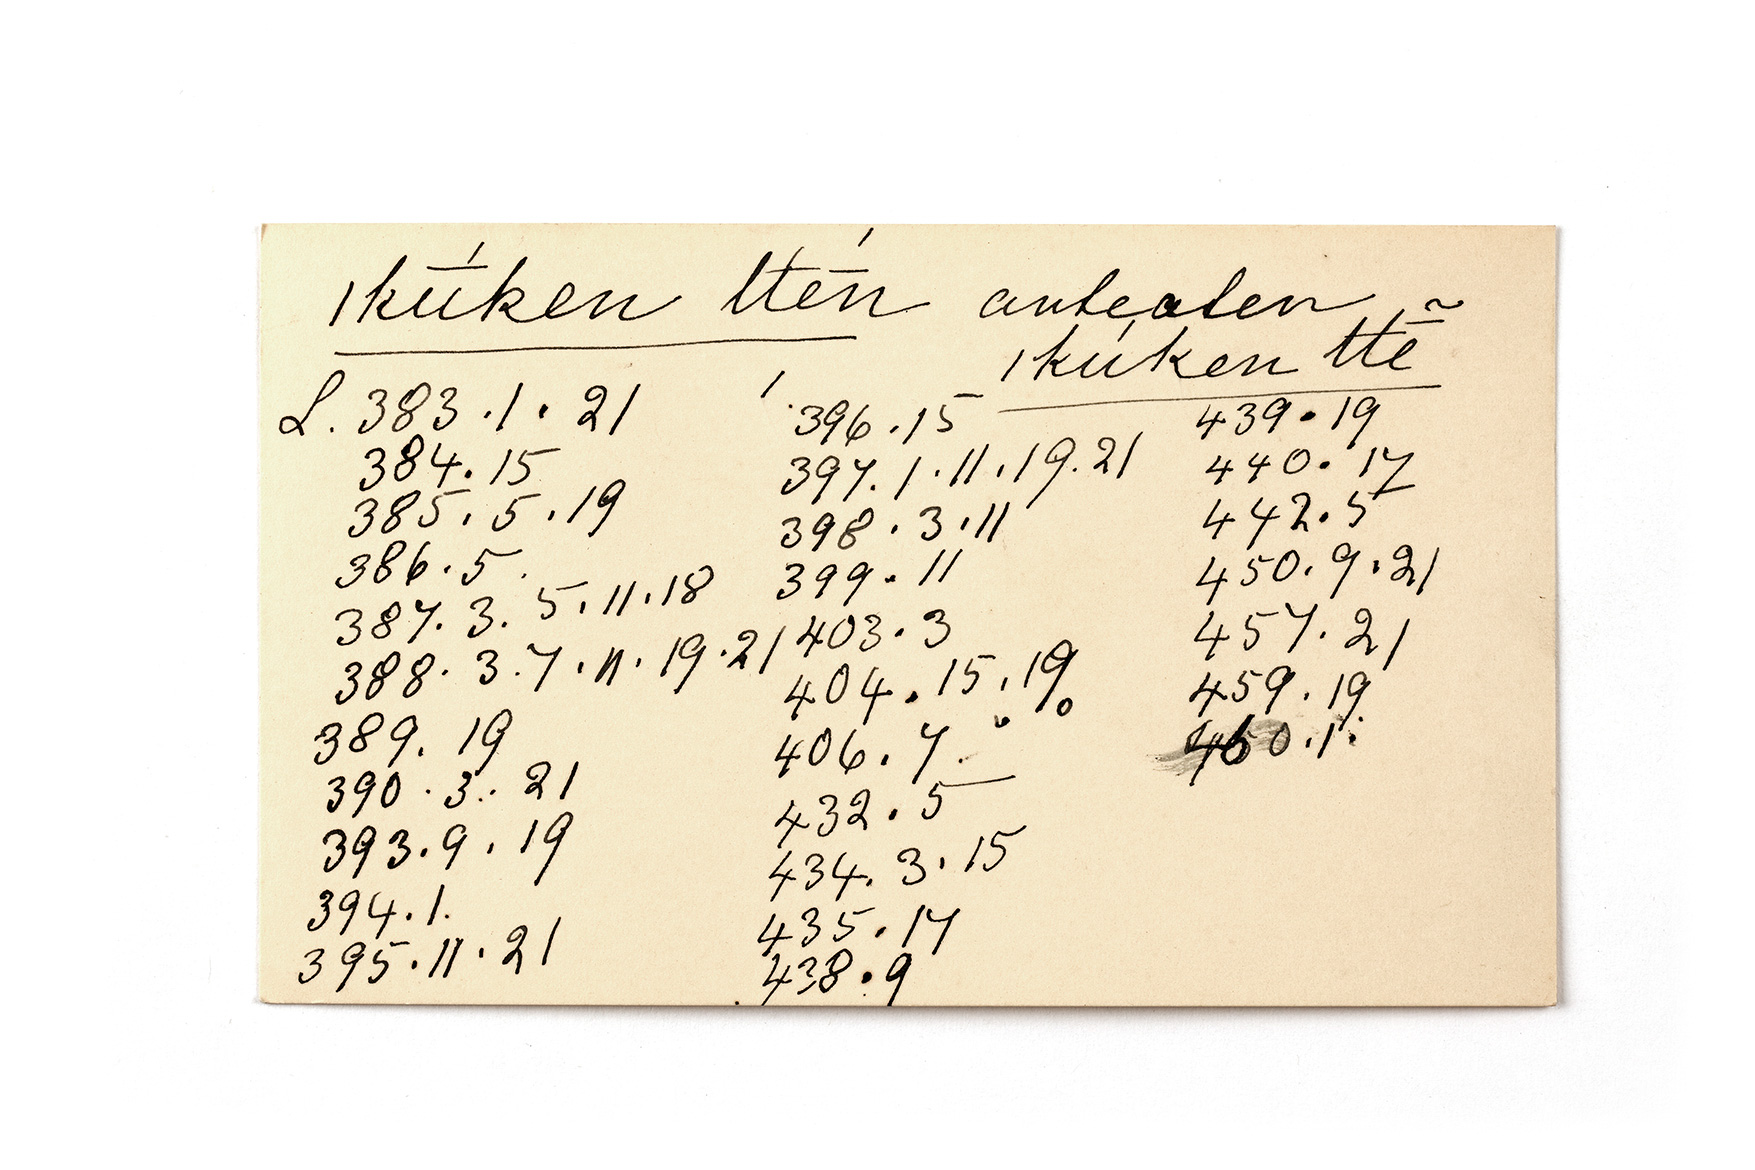 ıkū́ken ttḗn antealen
ıkúken ttē̃
L. 383.1.21
384.15
385.5.19
386.5.
387.3.5.11.18
388.3.7.11.19.21
389.19
390.3.21
393.9.19
394.1.
395.11.21
396.15
397.1.11.19.21
398.3.11
399.11
403.3
404.15.19
406.7.
432.5
434.3.15
435.17
438.9
439.19
440.17
442.5
450.9.21
457.21
459.19
460.1.